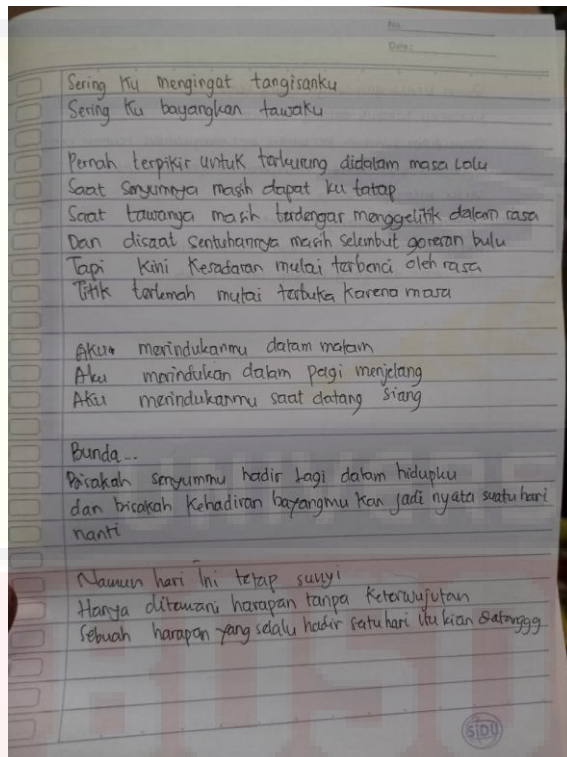 No.
Date:
Sering Ku mengingat tangisanku
Sering Ku bayangkan tawaku
Pernah terpikir untuk terkurung didalam masa lalu
Saat senyumnya masih dapat ku tatap
Saat tawanya masih terdengar menggelitik dalam rasa
Dan disaat sentuhannya masih selembut goresan bulu
Tapi Kini Kesadaran mulai terbenci oleh rasa
Titik terlemah mulai terbuka Karena masa
Aku merindukanmu dalam malam
Aku merindukan dalam pagi menjelang
Aku merindukanmu saat datang siang
Bunda...
Bisakah senyummu hadir lagi dalam hidupku
dan bisakah Kehadiran bayangmu Kan jadi nyata suatu hari
nanti
Namun hari Ini tetap sunyi
Hanya ditemani harapan tanpa Keterwujutan
Sebuah harapan yang selalu hadir satu hari itu kian datanggg
SiDU